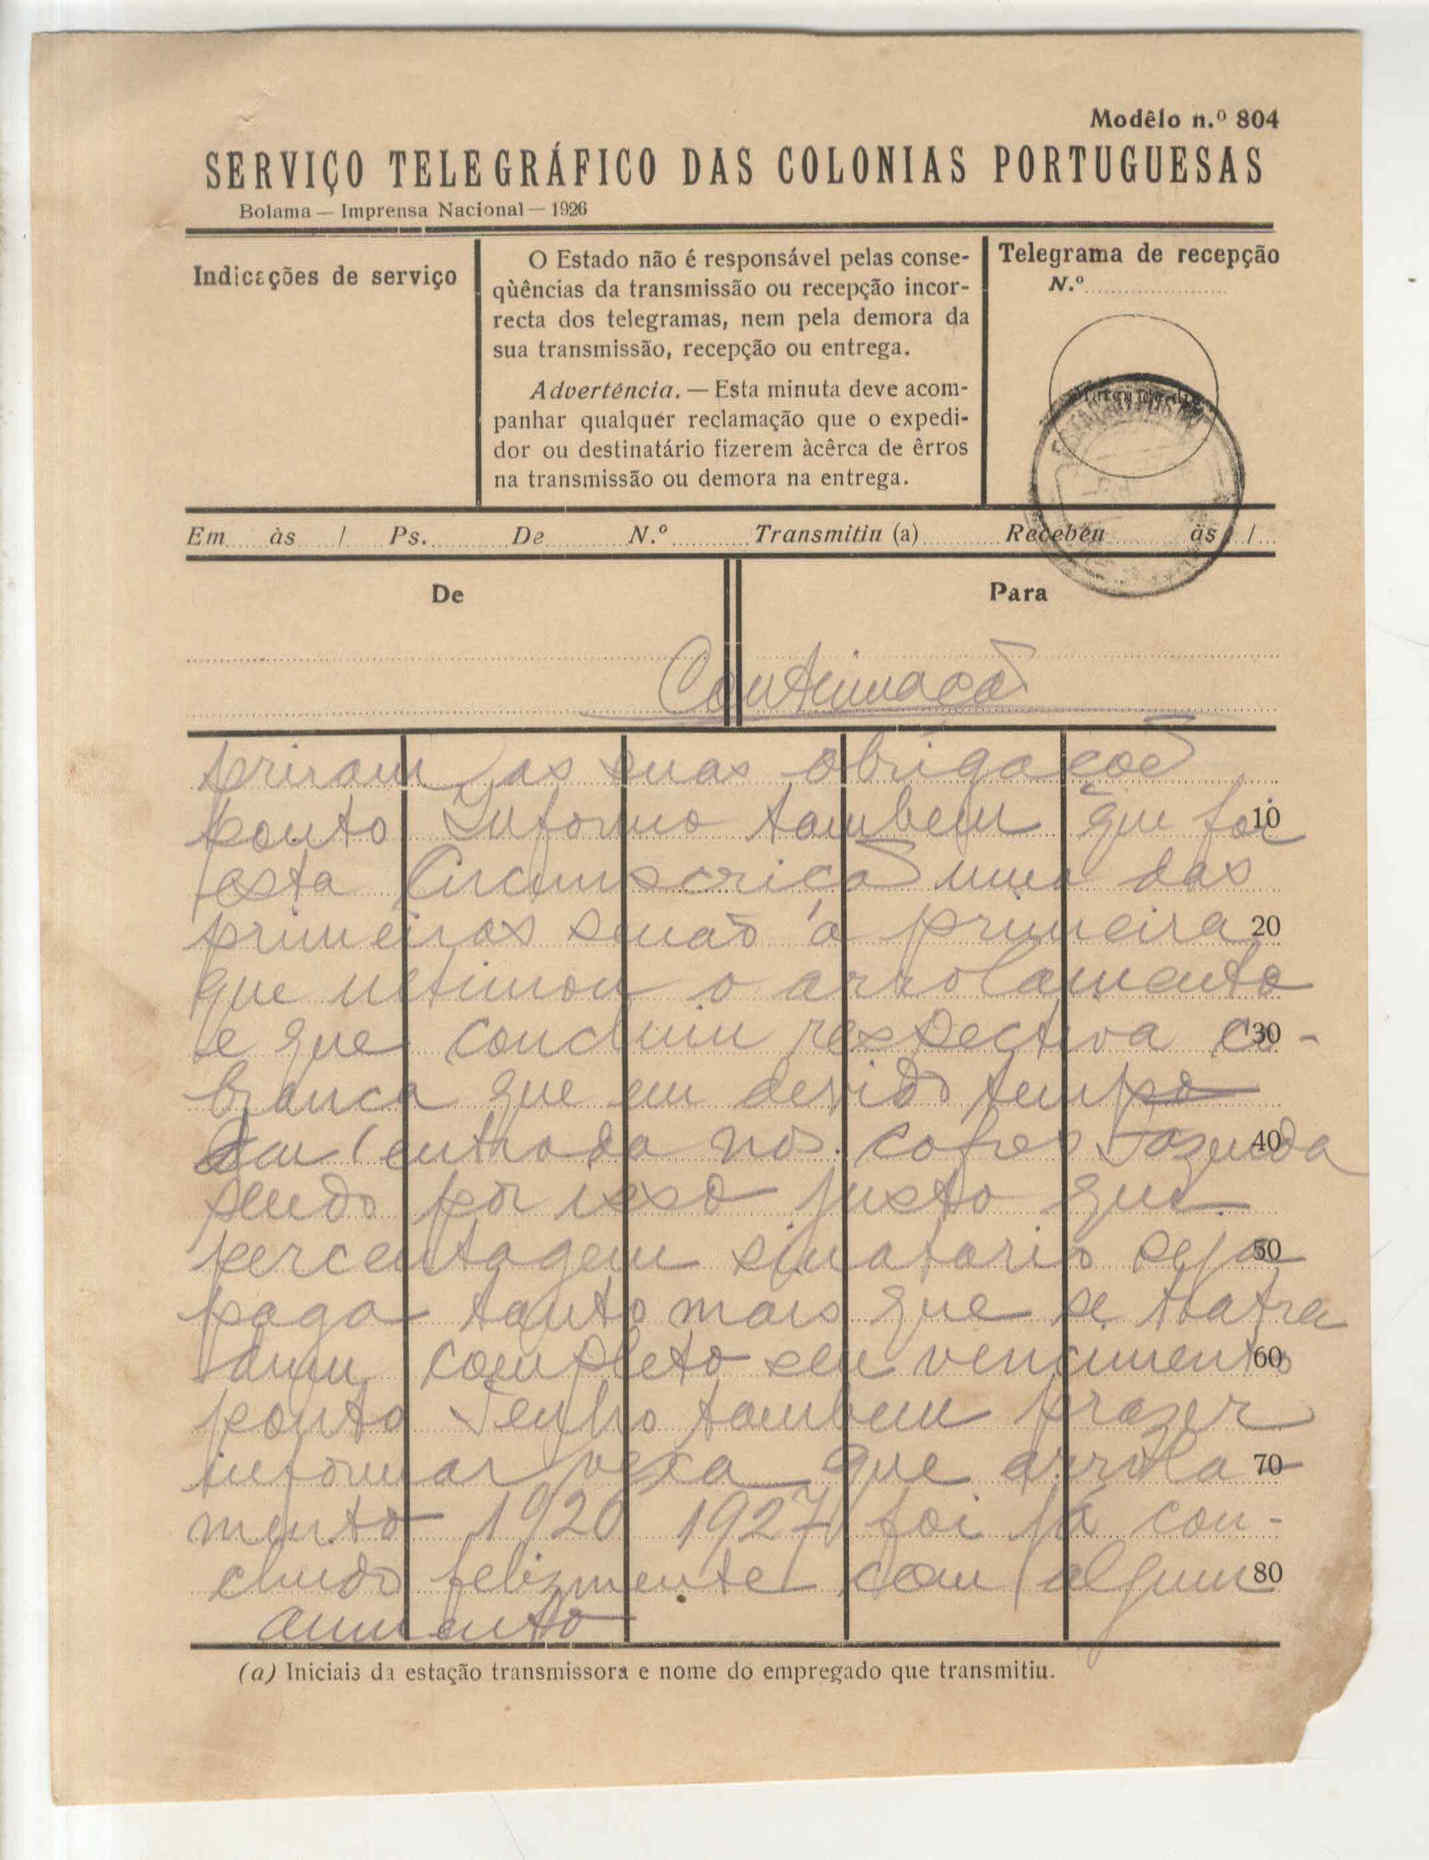 Modêlo n.º 804
SERVIÇO TELEGRÁFICO DAS COLONIAS PORTUGUESAS
Bolama — Imprensa Nacional — 1926
Indicações de serviço
O Estado não é responsável pelas conse-
qùências da transmissão ou recepção incor-
recta dos telegramas, nem pela demora da
sua transmissão, recepção ou entrega.
Advertência. — Esta minuta deve acom-
panhar qualquer reclamação que o expedi-
dor ou destinatário fizerem àcêrca de êrros
na transmissão ou demora na entrega.
Telegrama de recepção
N.º
Em às / Ps. De N.º Transmitiu (a) Recebeu às /
De
Para
Continuação
priram as suas obrigações
ponto Informo tambem que foi 10
esta Circumscrição uma das
primeiras senão a primeira 20
que ultimou o arrolamento
e que concluiu respectiva co- 30
brança que em devido tempo
deu entrada nos cofres Fazenda 40
sendo por isso justo que
percentagem seja 50
paga tanto mais que se tratra
dum completo seu vencimento 60
ponto Tenho tambem prazer
informar vexa que arrola 70
mento 1926 1927 foi já con-
cluido felizmente com algum 80
aumento
(a) Iniciais da estação transmissora e nome do empregado que transmitiu.